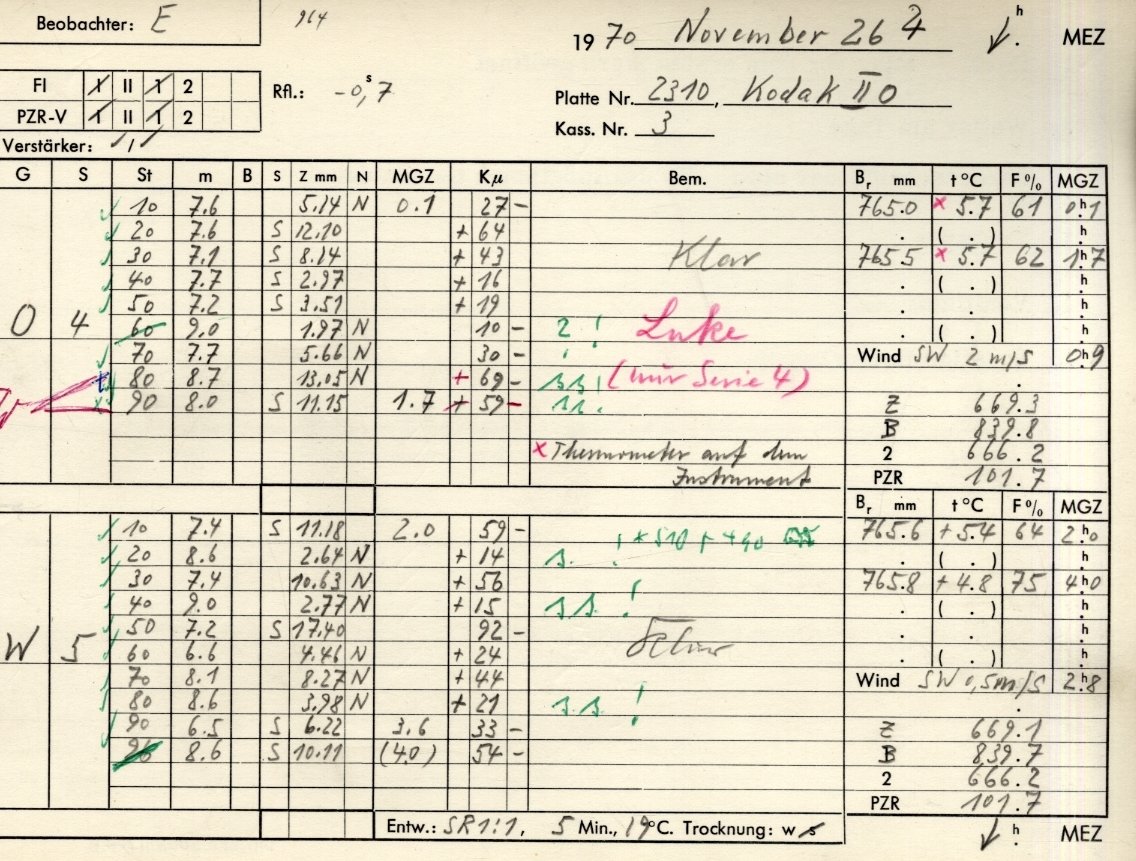 Beobachter: E 964
1970 November 26 h MEZ
FI I II 1 2
PZR-V I II 1 2
Verstärker: I
Rfl.: -0,s7
Platte Nr. 2310, Kodak IIO
Kass. Nr. 3
G S St m B S Z mm N MGZ Kμ Bem. Br mm t°C F% MGZ
10 7.6 5.14 N 0.1 27 - 765.0 x 5.7 61 0h.1
20 7.6 S 12.10 + 64 . ( . ) h.
30 7.1 S 8.14 + 43 Klar 765.5 x 5.7 62 1h.7
40 7.7 S 2.97 + 16 . ( . ) h.
50 7.2 S 3.51 + 19 . h.
O 4 60 9.0 1.97 N 10 - 2! Luke . ( . ) h.
70 7.7 5.66 N 30 - Wind SW 2 m/s 0h9
80 8.7 13.05 N + 69 - s.s! (nur Serie 4) .
90 8.0 S 11.15 1.7 + 59 - Z 669.3
B 839.8
x Thermometer auf dem 2 666.2
Instrument PZR 101.7
Br mm t°C F% MGZ
10 7.4 S 11.18 2.0 59 - 765.6 + 5.4 64 2h.0
20 8.6 2.64 N + 14 s. . ( . ) h.
30 7.4 10.63 N + 56 765.8 + 4.8 75 4h.0
40 9.0 2.77 N + 15 s.s. ! . ( . ) h.
50 7.2 S 17.40 92 - . h.
W 5 60 6.6 4.46 N + 24 . ( . ) h.
70 8.1 8.27 N + 44 Wind SW 0,5m/s 2h.8
80 8.6 3.98 N + 21 s.s. ! .
90 6.5 S 6.22 3.6 33 - Z 669.1
96 8.6 S 10.11 (4.0) 54 - B 839.7
2 666.2
PZR 101.7
Entw.: SR1:1, 5 Min., 19°C. Trocknung: w s h. MEZ